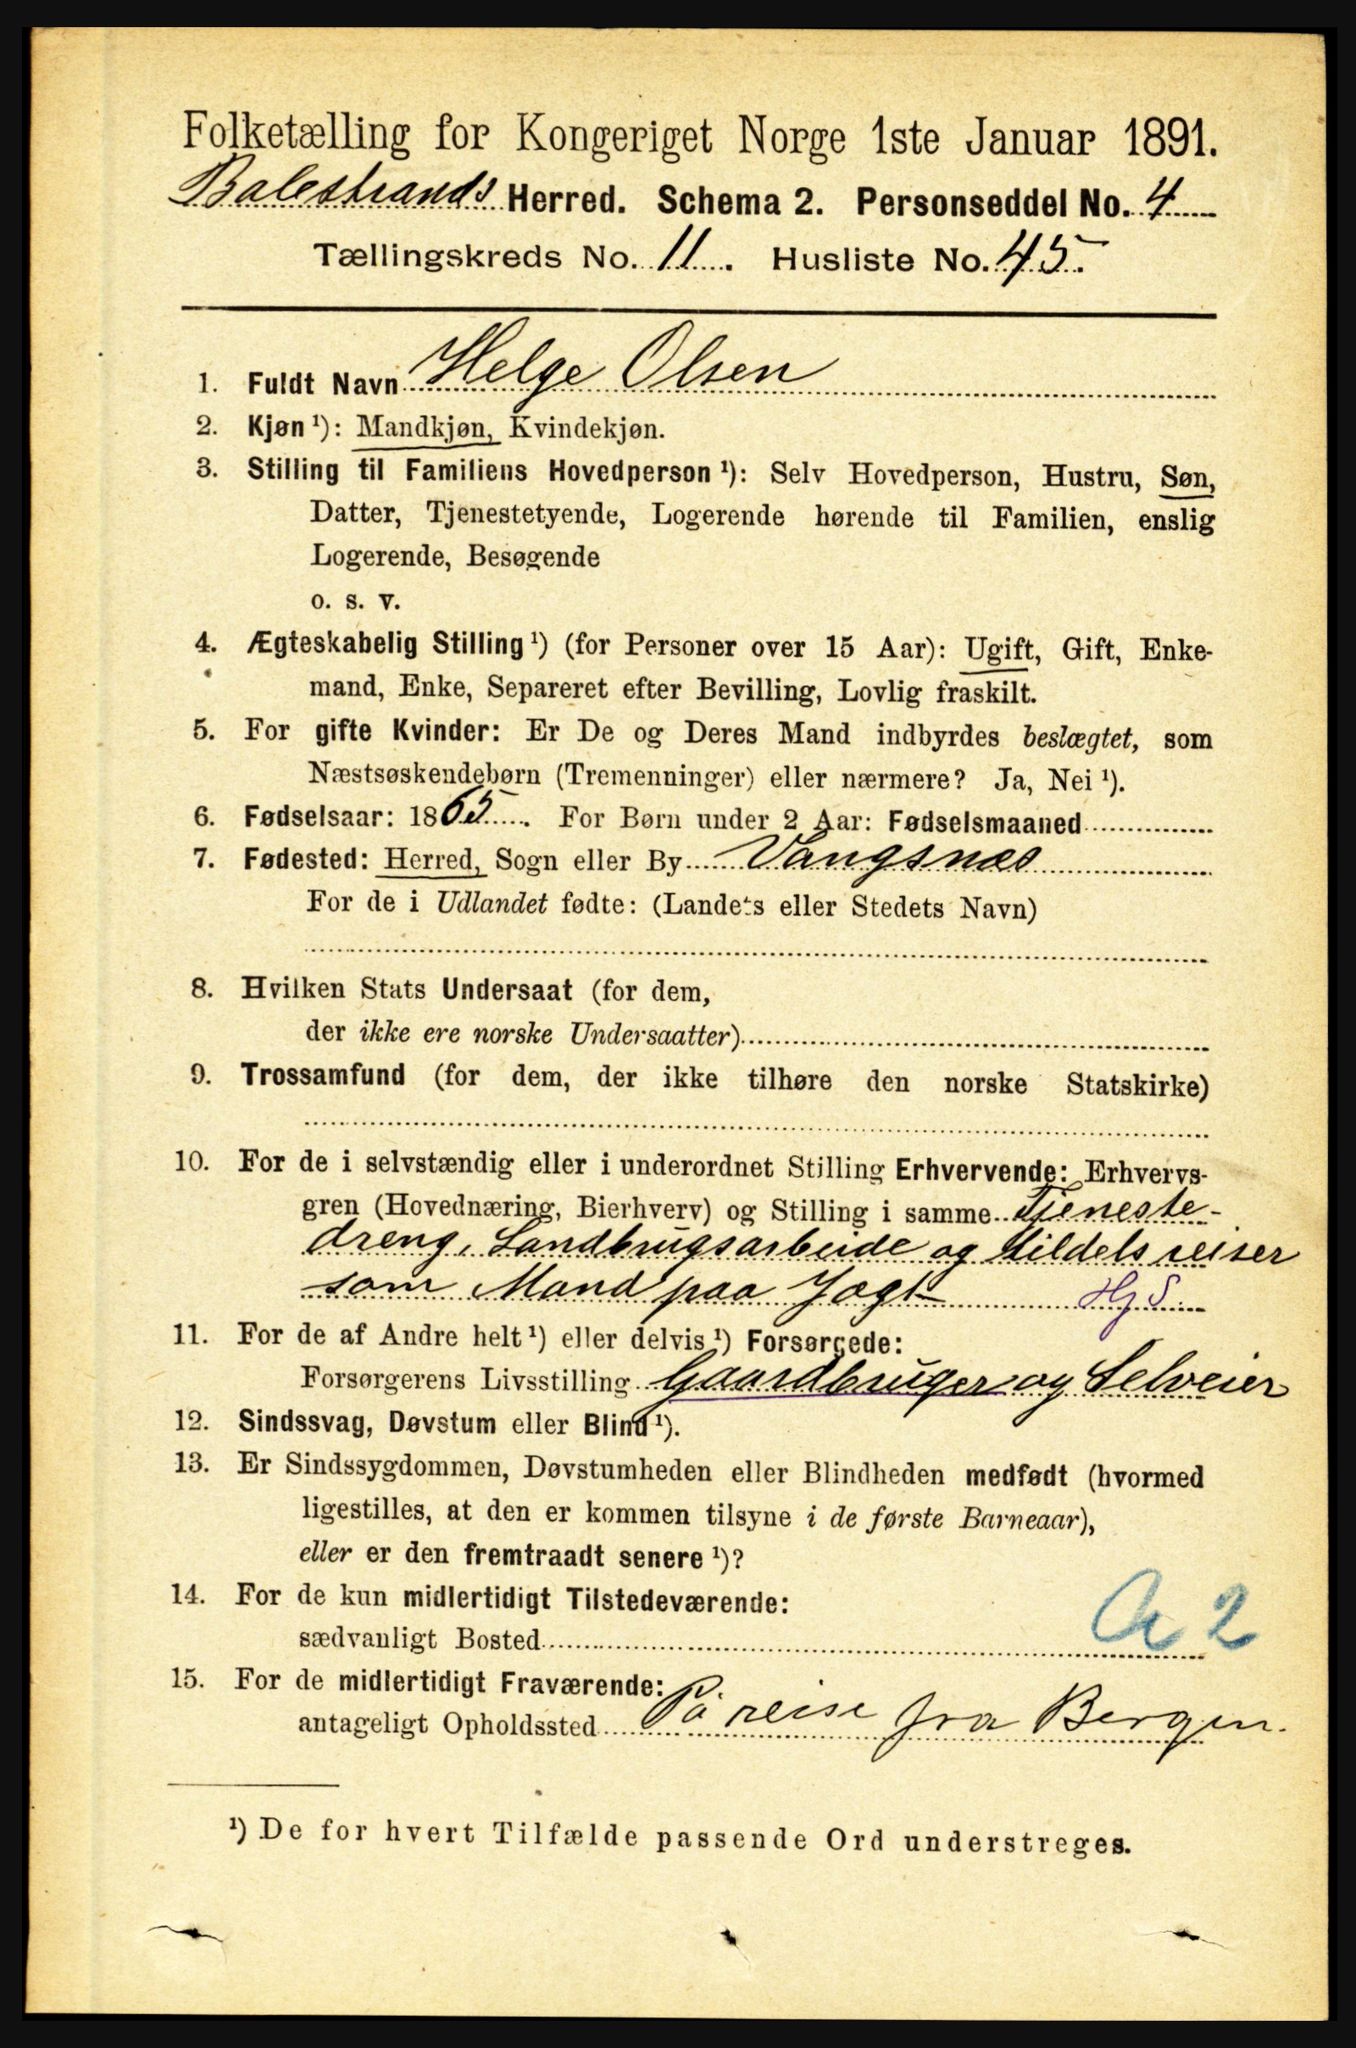 Folketælling for Kongeriget Norge 1ste Januar 1891.
Balestrands Herred. Schema 2. Personseddel No. 4
Tællingskreds No. 11. Husliste No. 45.
1. Fuldt Navn Helge Olsen
2. Kjøn ¹): Mandkjøn, Kvindekjøn.
3. Stilling til Familiens Hovedperson ¹): Selv Hovedperson, Hustru, Søn,
Datter, Tjenestetyende, Logerende hørende til Familien, enslig
Logerende, Besøgende
o. s. v.
4. Ægteskabelig Stilling ¹) (for Personer over 15 Aar): Ugift, Gift, Enke-
mand, Enke, Separeret efter Bevilling, Lovlig fraskilt.
5. For gifte Kvinder: Er De og Deres Mand indbyrdes beslægtet, som
Næstsøskendebørn (Tremenninger) eller nærmere? Ja, Nei ¹).
6. Fødselsaar: 1865. For Børn under 2 Aar: Fødselsmaaned
7. Fødested: Herred, Sogn eller By Vangsnæs
For de i Udlandet fødte: (Landets eller Stedets Navn)
8. Hvilken Stats Undersaat (for dem,
der ikke ere norske Undersaatter)
9. Trossamfund (for dem, der ikke tilhøre den norske Statskirke)
10. For de i selvstændig eller i underordnet Stilling Erhvervende: Erhvervs-
gren (Hovednæring, Bierhverv) og Stilling i samme Tjeneste-
dreng, Landbrugsarbeide og tildels reiser
som Mand paa Jagt HjS
11. For de af Andre helt ¹) eller delvis ¹) Forsørgede:
Forsørgerens Livsstilling Gaardbruger og Selveier
12. Sindssvag, Døvstum eller Blind ¹).
13. Er Sindssygdommen, Døvstumheden eller Blindheden medfødt (hvormed
ligestilles, at den er kommen tilsyne i de første Barneaar),
eller er den fremtraadt senere ¹)?
14. For de kun midlertidigt Tilstedeværende:
sædvanligt Bosted
A 2
15. For de midlertidigt Fraværende:
antageligt Opholdssted På reise fra Bergen.
¹) De for hvert Tilfælde passende Ord understreges.